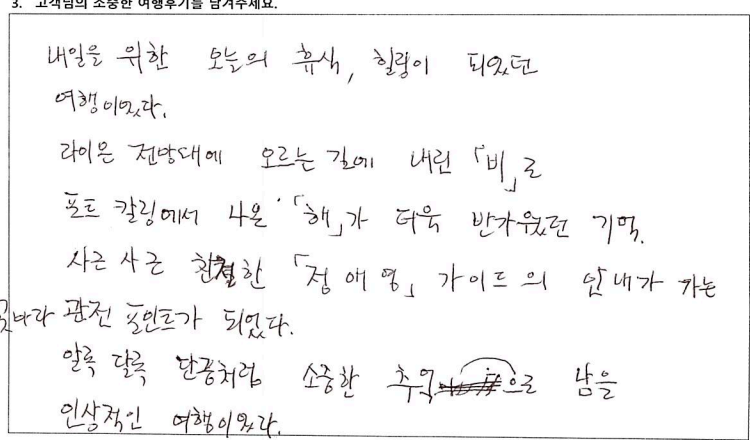 3. 고객님의 소중한 여행후기를 남겨주세요.
내일을 위한 오늘의 휴식, 힐링이 되었던
여행이었다.
라이온 전망대에 오르는 길에 내린 「비」로
포트 칼링에서 나온 「해」가 더욱 반가웠던 기억.
사근 사근 친절한 「정애영」 가이드의 안내가 가는
곳마다 관전 포인트가 되었다.
알록 달록 단풍처럼 소중한 추억으로 남을
인상적인 여행이었다.